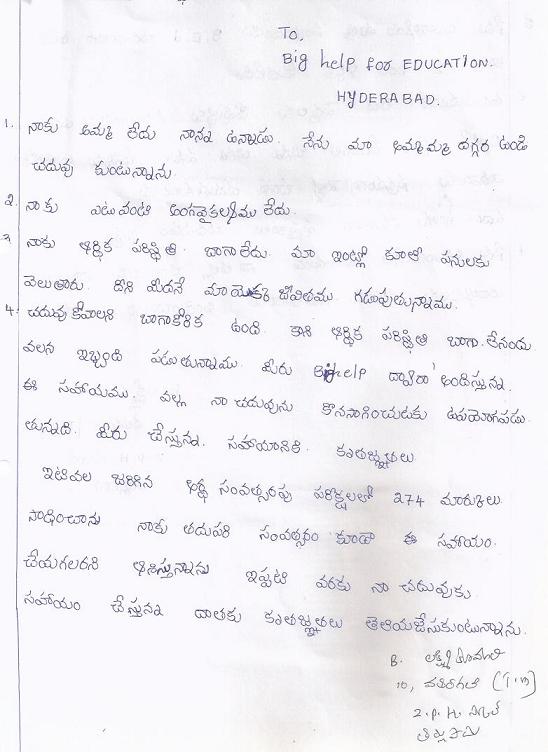 To,
Big help for EDUCATION.
HYDERABAD.
1. నాకు అమ్మ లేదు నాన్న ఉన్నాడు. నేను మా అమ్మమ్మ దగ్గర ఉండి
చదువు కుంటున్నాను.
2. నాకు ఎటువంటి అంగవైకల్యము లేదు.
3. నాకు ఆర్థిక పరిస్థితి బాగాలేదు. మా ఇంట్లో కూలి పనులకు
వెలుతారు. దాని మీదనే మా యొక్క జీవితము గడుపుతున్నాము.
4. చదువుకోవాలని బాగాకోరిక ఉంది కాని ఆర్థిక పరిస్థితి బాగా లేనందు
వలన ఇబ్బంది పడుతున్నాము. మీరు Big help ద్వారా అందిస్తున్న
ఈ సహాయము వల్ల నా చదువును కొనసాగించుటకు ఉపయోగపడు
తున్నది. మీరు చేస్తున్న సహాయానికి కృతజ్ఞతలు
ఇటివల జరిగిన అర్ధ సంవత్సరపు పరిక్షలలో 274 మార్కులు
సాధించాను నాకు తదుపరి సంవత్సరం కూడా ఈ సహాయం
చేయగలరని ఆశిస్తున్నాను ఇప్పటి వరకు నా చదువుకు
సహాయం చేస్తున్న దాతకు కృతజ్ఞతలు తెలియజేసుకుంటున్నాను.
B. లక్ష్మి
10, తరగతి (T.m)
Z.P.H.